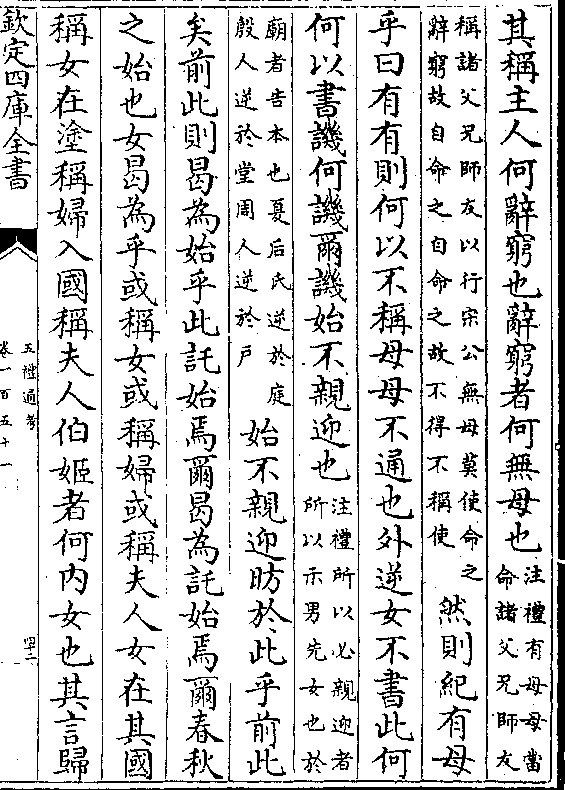 其稱主人何辭窮也辭窮者何無母也注禮有母母當
命諸父兄師友
稱諸父兄師友以行宗公無母莫使命之
辭窮故自命之自命之故不得不稱使
然則紀有母
乎曰有有則何以不稱母母不通也外逆女不書此何
何以書譏何譏爾譏始不親迎也注禮所以必親迎者
所以示男先女也於
廟者告本也夏后氏逆於庭
殷人逆於堂周人逆於戶
始不親迎昉於此乎前此
矣前此則曷為始乎此託始焉爾曷為託始焉爾春秋
之始也女曷為乎或稱女或稱婦或稱夫人女在其國
稱女在塗稱婦入國稱夫人伯姬者何內女也其言歸
欽定四庫全書
五禮通考
卷一百五十一